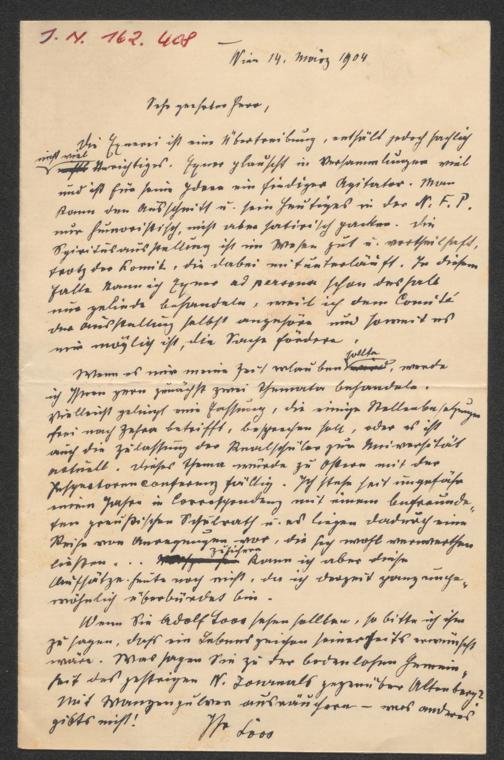 I. N. 162. 408
Wien 14. März 1904
Sehr geehrter Herr,
Die Exnerei ist eine Übertreibung, enthält jedoch sachlich
nicht viel
Unrichtiges. Exner plauscht in Versammlungen viel
und ist für seine Ideen ein findiger Agitator. Man
kann den Ausschnitt u. sein heutiges in der N. F. P.
nur humoristisch, nicht aber satirisch packen. Die
Spiritusausstellung ist im Wesen gut u. vortheilhaft,
trotz der Komik, die dabei mitunterläuft. In diesem
Falle kann ich Exner ad personam schon deshalb
nur gelinde behandeln, weil ich dem Comité
der Ausstellung selbst angehöre und soweit es
mir möglich ist, die Sache fördere.
Wenn es mir meine Zeit erlauben sollte, werde
ich Ihnen gern zunächst zwei Themata behandeln.
Vielleicht gelingt mir Fassung, die einige Stellenbesetzungen
frei nach Zehra betrifft, besprechen soll, oder es ist
auch die Zulassung der Realschüler zur Universität
actuell. Dieses Thema würde zu Ostern mit der
Inspectorenconferenz fällig. Ich stehe seit ungefähr
einem Jahre in Correspondenz mit einem befreunde-
ten preußischen Schulrath u. es liegen dadurch eine
Reihe von Anregungen vor, die sich wohl verwerthen
ließen. ... zusichern kann ich aber diese
Aufsätze heute noch nicht, da ich derzeit ganz unge-
wöhnlich überbürdet bin.
Wenn Sie Adolf Loos sehen sollten, so bitte ich ihm
zu sagen, dass ein Lebenszeichen seinerseits erwünscht
wäre. Was sagen Sie zu der bodenlosen Gemein-
heit des gestrigen N. Journals gegenüber Altenberg?
Mit Wanzenpulver ausräuchern – was anderes
gibts nicht!
Ihr